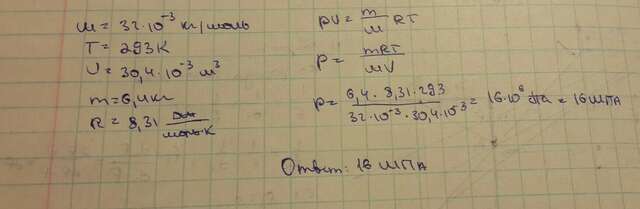 M = 32·10⁻³ кг/моль
T = 293 К
V = 30,4·10⁻³ м³
m = 6,4 кг
R = 8,31 Дж/моль·К
pV = m/M RT
P = mRT/MV
P = 6,4·8,31·293/32·10⁻³·30,4·10⁻³ = 16·10⁶ Па = 16 МПА
Ответ: 16 МПА